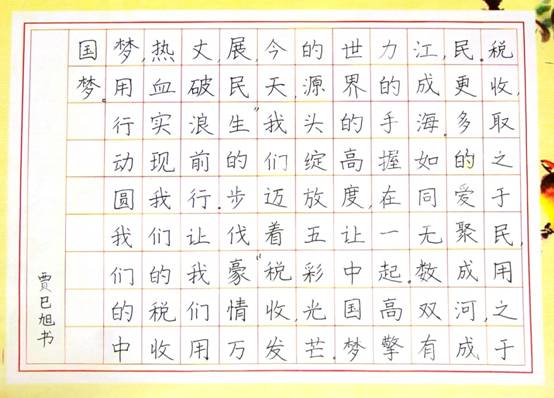 税收,取之于民,用之于
民.更多的爱聚成河,成
江,成海.如同无数双有
力的手握在一起.高擎
世界的高度,让中国梦
的源头绽放五彩光芒.
今天.我们迈着“税收,发
展,民生”的步伐豪情万
丈,破浪前行.让我们用
热血实现我们的税收
梦,用行动圆我们的中
国梦。
贾巳旭书